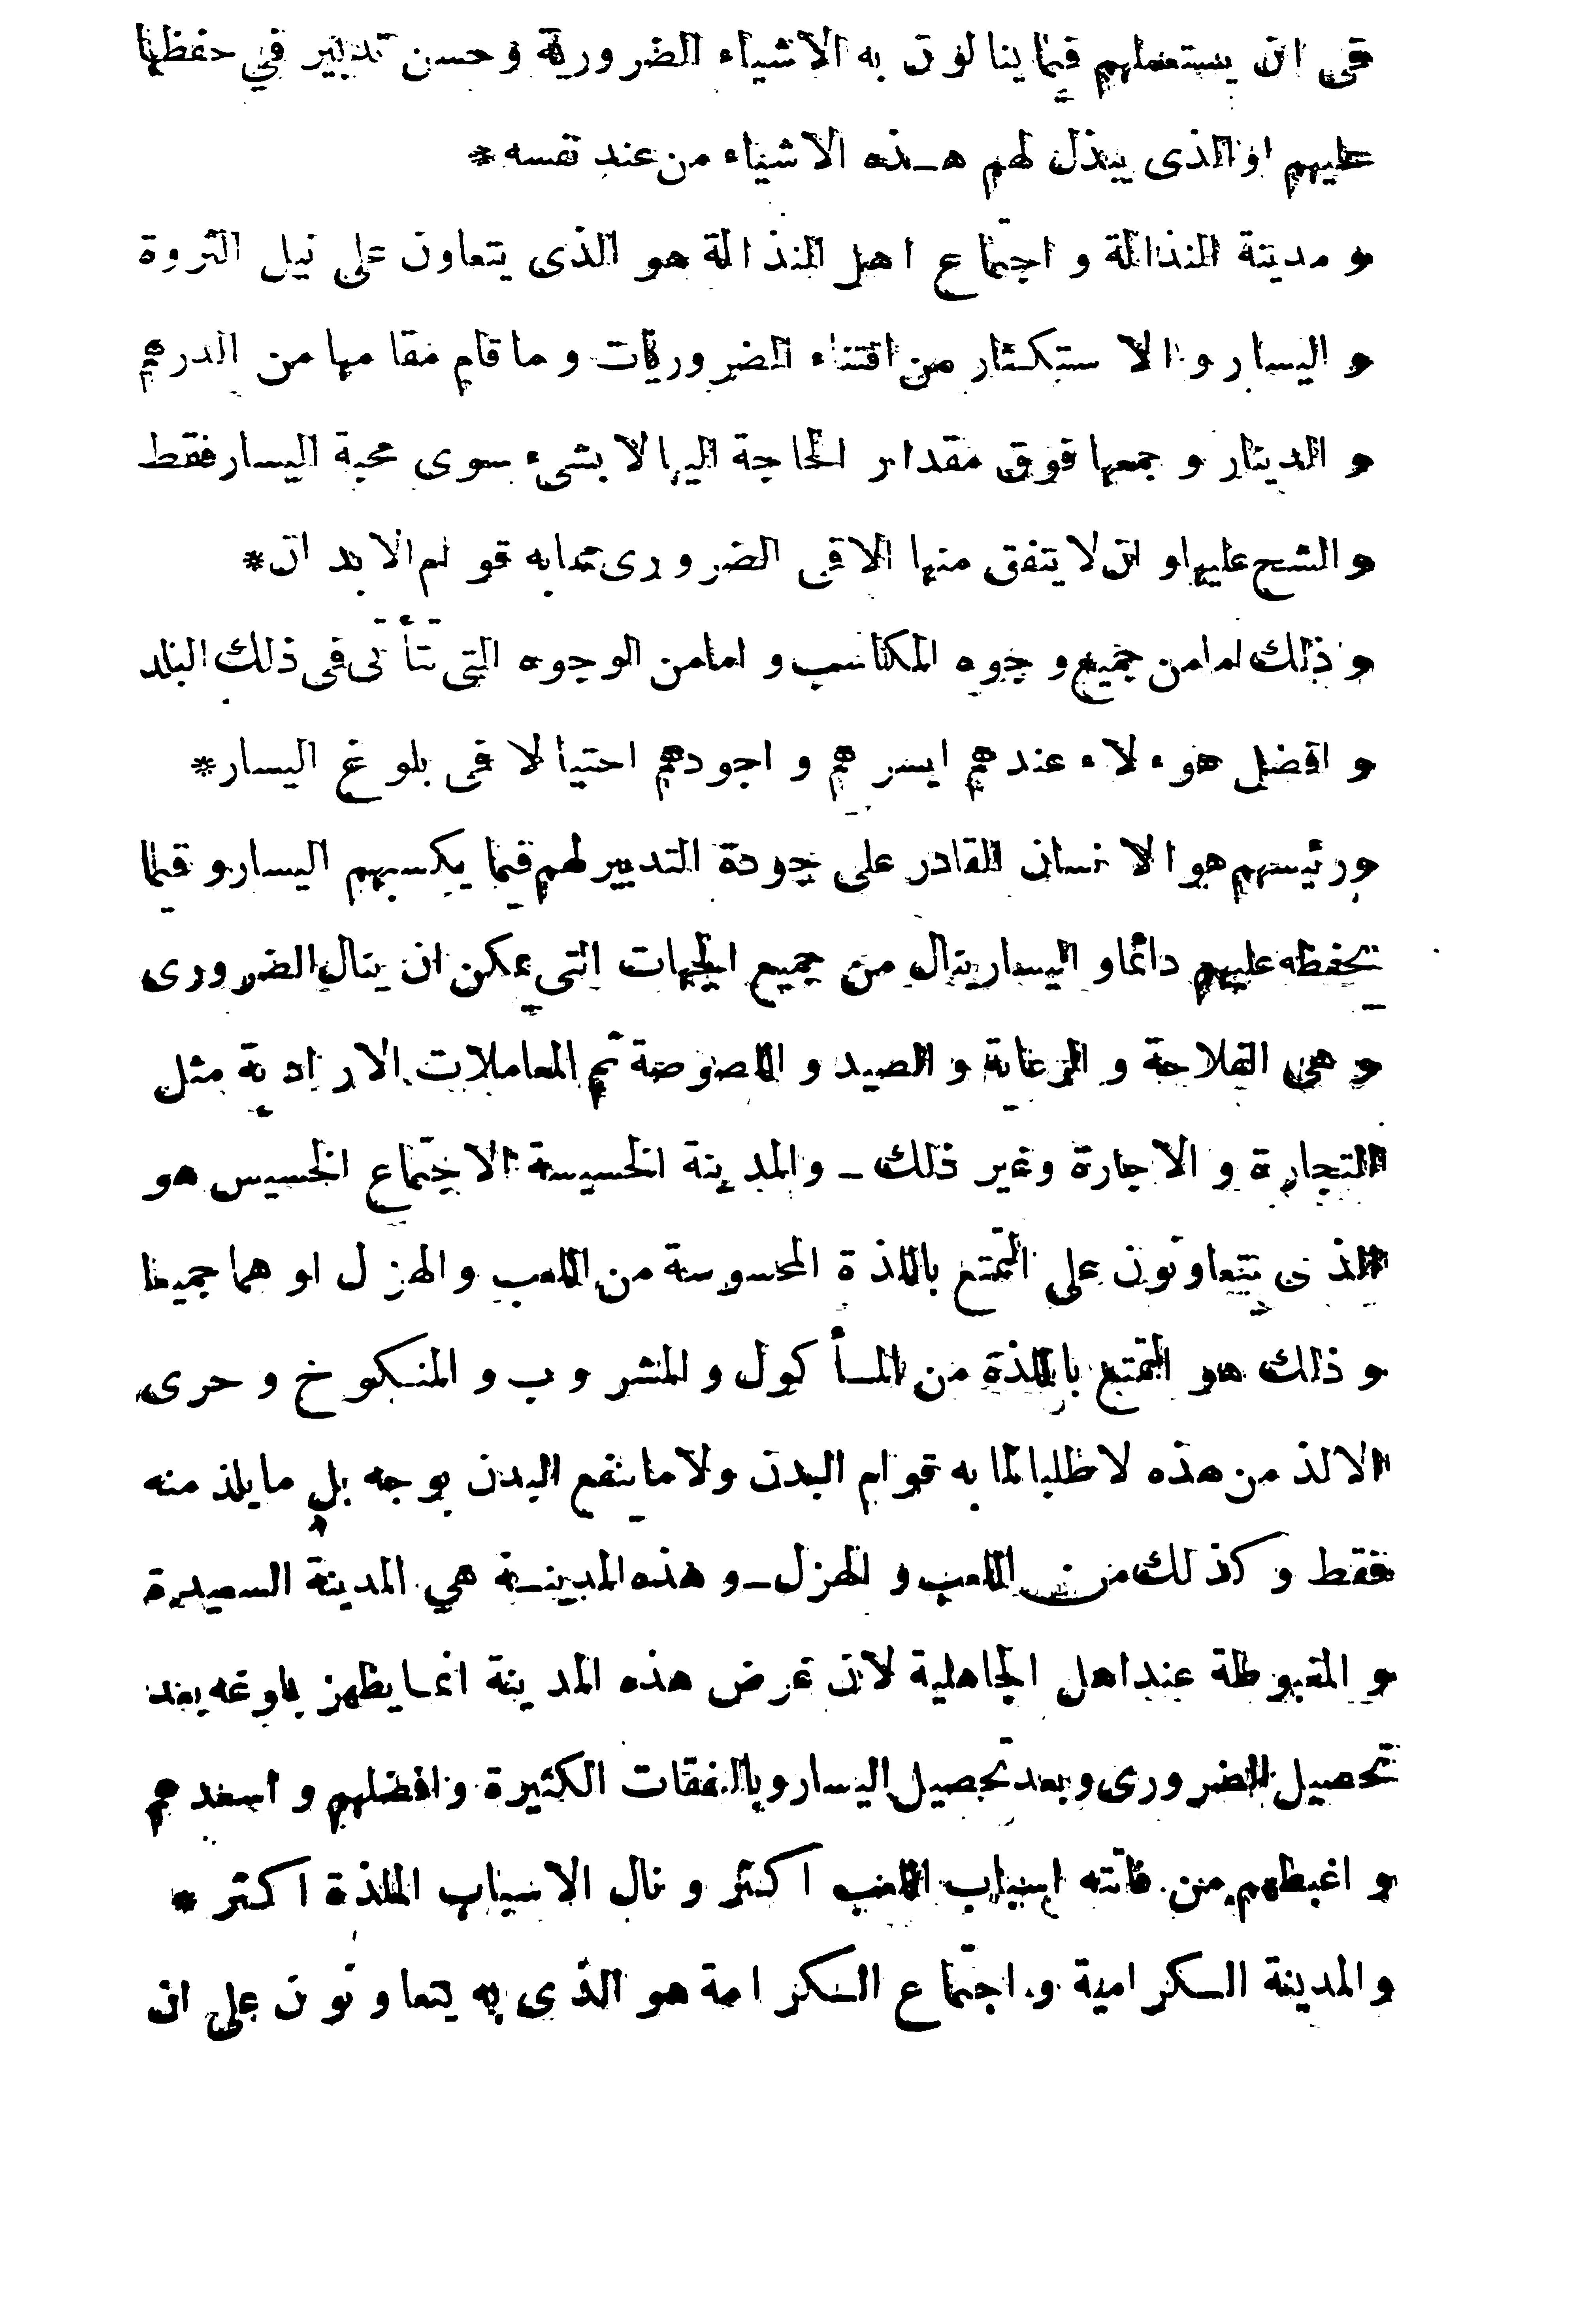 في ان يستعملهم فيما ينالون به الاشياء الضرورية وحسن تدبير في حفظها
عليهم او الذى يبذل لهم هـذه الاشياء من عند نفسه *
و مدينة النذالة و اجتماع اهل النذالة هو الذى يتعاون على نيل الثروة
و اليسار و الاستكثار من اقتناء الضروريات و ما قام مقامها من الدرهم
و الدينار و جمعها فوق مقدار الحاجة اليها لا بشىء سوى محبة اليسار فقط
و الشح عليها و ان لا ينفق منها الا فى الضرورى مما به قوام الابدان *
و ذلك اما من جميع وجوه المكاسب و اما من الوجوه التى تتأتى فى ذلك البلد
و افضل هوءلاء عندهم ايسرهم و اجودهم احتيالا فى بلوغ اليسار *
و رئيسهم هو الانسان القادر على جودة التدبير لهم فيما يكسبهم اليسار و فيما
يحفظه عليهم دائما و اليسار ينال من جميع الجهات التى يمكن ان ينال الضرورى
و هى الفلاحة و الرعاية و الصيد و اللصوصة ثم المعاملات الارادية مثل
التجارة و الاجارة وغير ذلك ـ والمدينة الخسيسة الاجتماع الخسيس هو
الذى يتعاونون على التمتع باللذة المحسوسة من اللعب و الهزل او هما جميعا
و ذلك هو التمتع باللذة من المـأكول و المشروب و المنـكوح و حرى
الالذ من هذه لا طلبا لما به قوام البدن ولا ما ينفع البدن بوجه بل ما يلذ منه
فقط و كذلك من اللعب و الهزل ـ و هذه المدينـة هي المدينة السعيدة
و المغبوطة عند اهل الجاهلية لان غرض هذه المدينة انمـا يظهر بلوغه بعد
تحصيل الضرورى و بعد تحصيل اليسار و بالنفقات الكثيرة و افضلهم و اسعدهم
و اغبطهم من فاتته اسباب اللعب اكثر و نال الاسباب الملذة اكثر *
والمدينة الـكرامية و اجتماع الـكرامة هو الذى به يتعاونون على ان